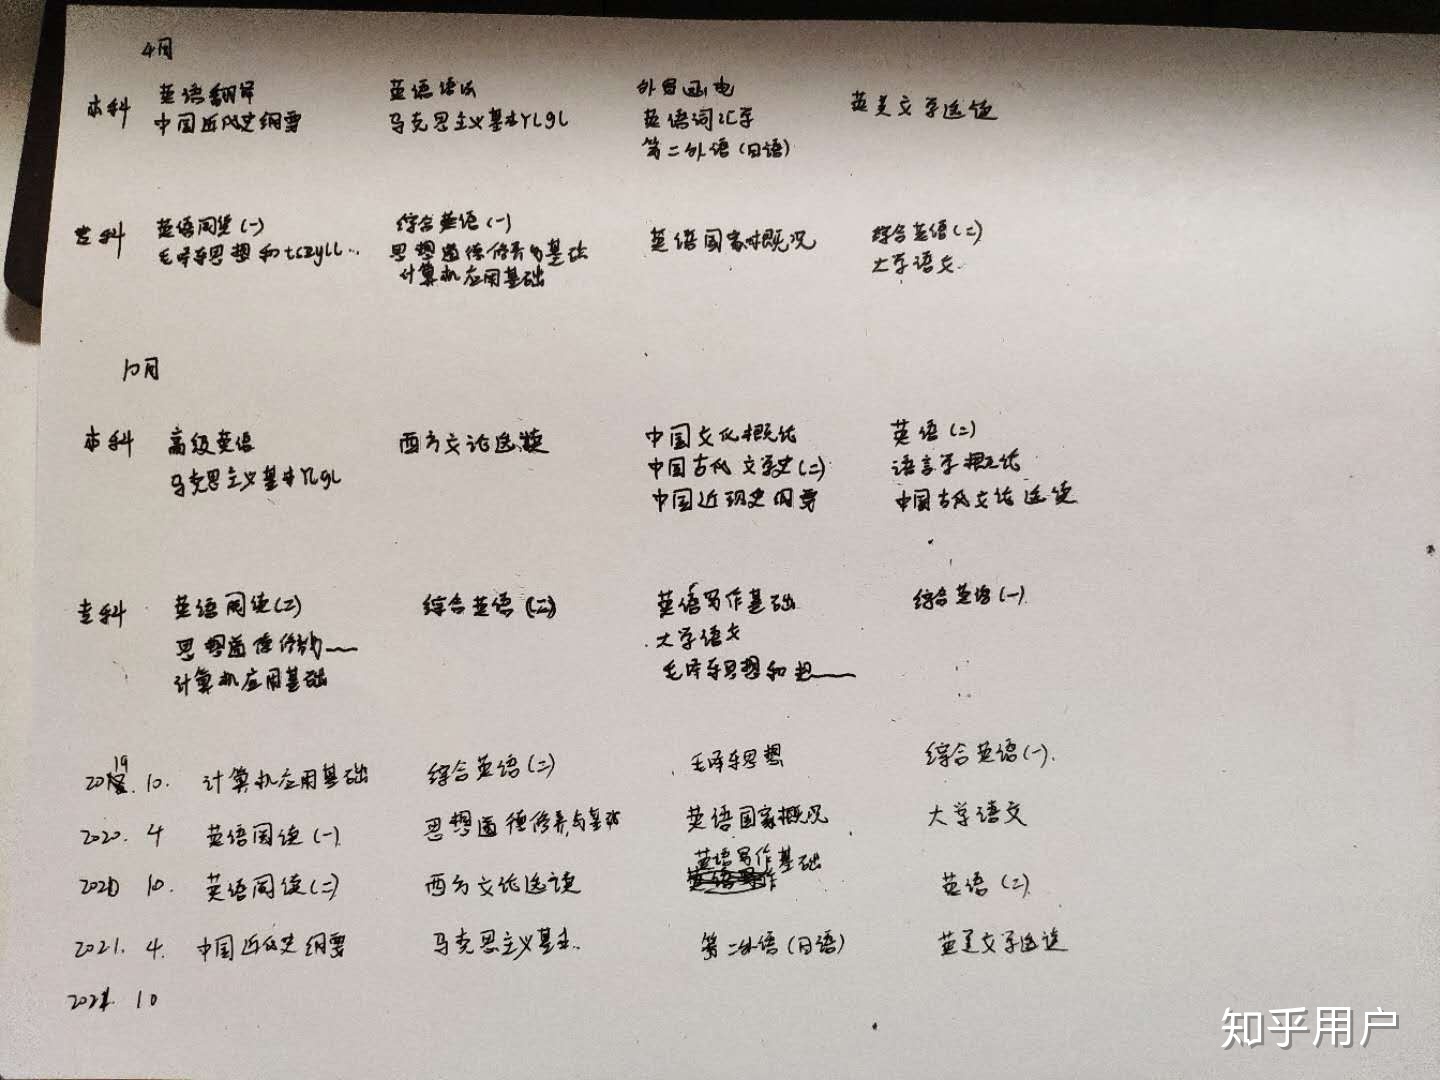 4月
本科 英语翻译 英语语法 外贸函电 英美文学选读
中国近代史纲要 马克思主义基本YLGL 英语词汇学
第二外语(日语)
专科 英语阅读(一) 综合英语(一) 英语国家概况 综合英语(二)
毛泽东思想和tszyll... 思想道德修养与基础 大学语文
计算机应用基础
10月
本科 高级英语 西方文论选读 中国文化概论 英语(二)
马克思主义基本YLGL 中国古代文学史(二) 语言学概论
中国近现史纲要 中国古代文论选读
专科 英语阅读(二) 综合英语(二) 英语写作基础 综合英语(一)
思想道德修养 大学语文
计算机应用基础 毛泽东思想和
2019. 10. 计算机应用基础 综合英语(二) 毛泽东思想 综合英语(一).
2020. 4 英语阅读(一) 思想道德修养与基础 英语国家概况 大学语文
2020 10. 英语阅读(二) 西方文论选读 英语写作基础 英语(二)
2021. 4. 中国近代史纲要 马克思主义基本. 第二外语(日语) 英美文学选读
2021. 10
知乎用户